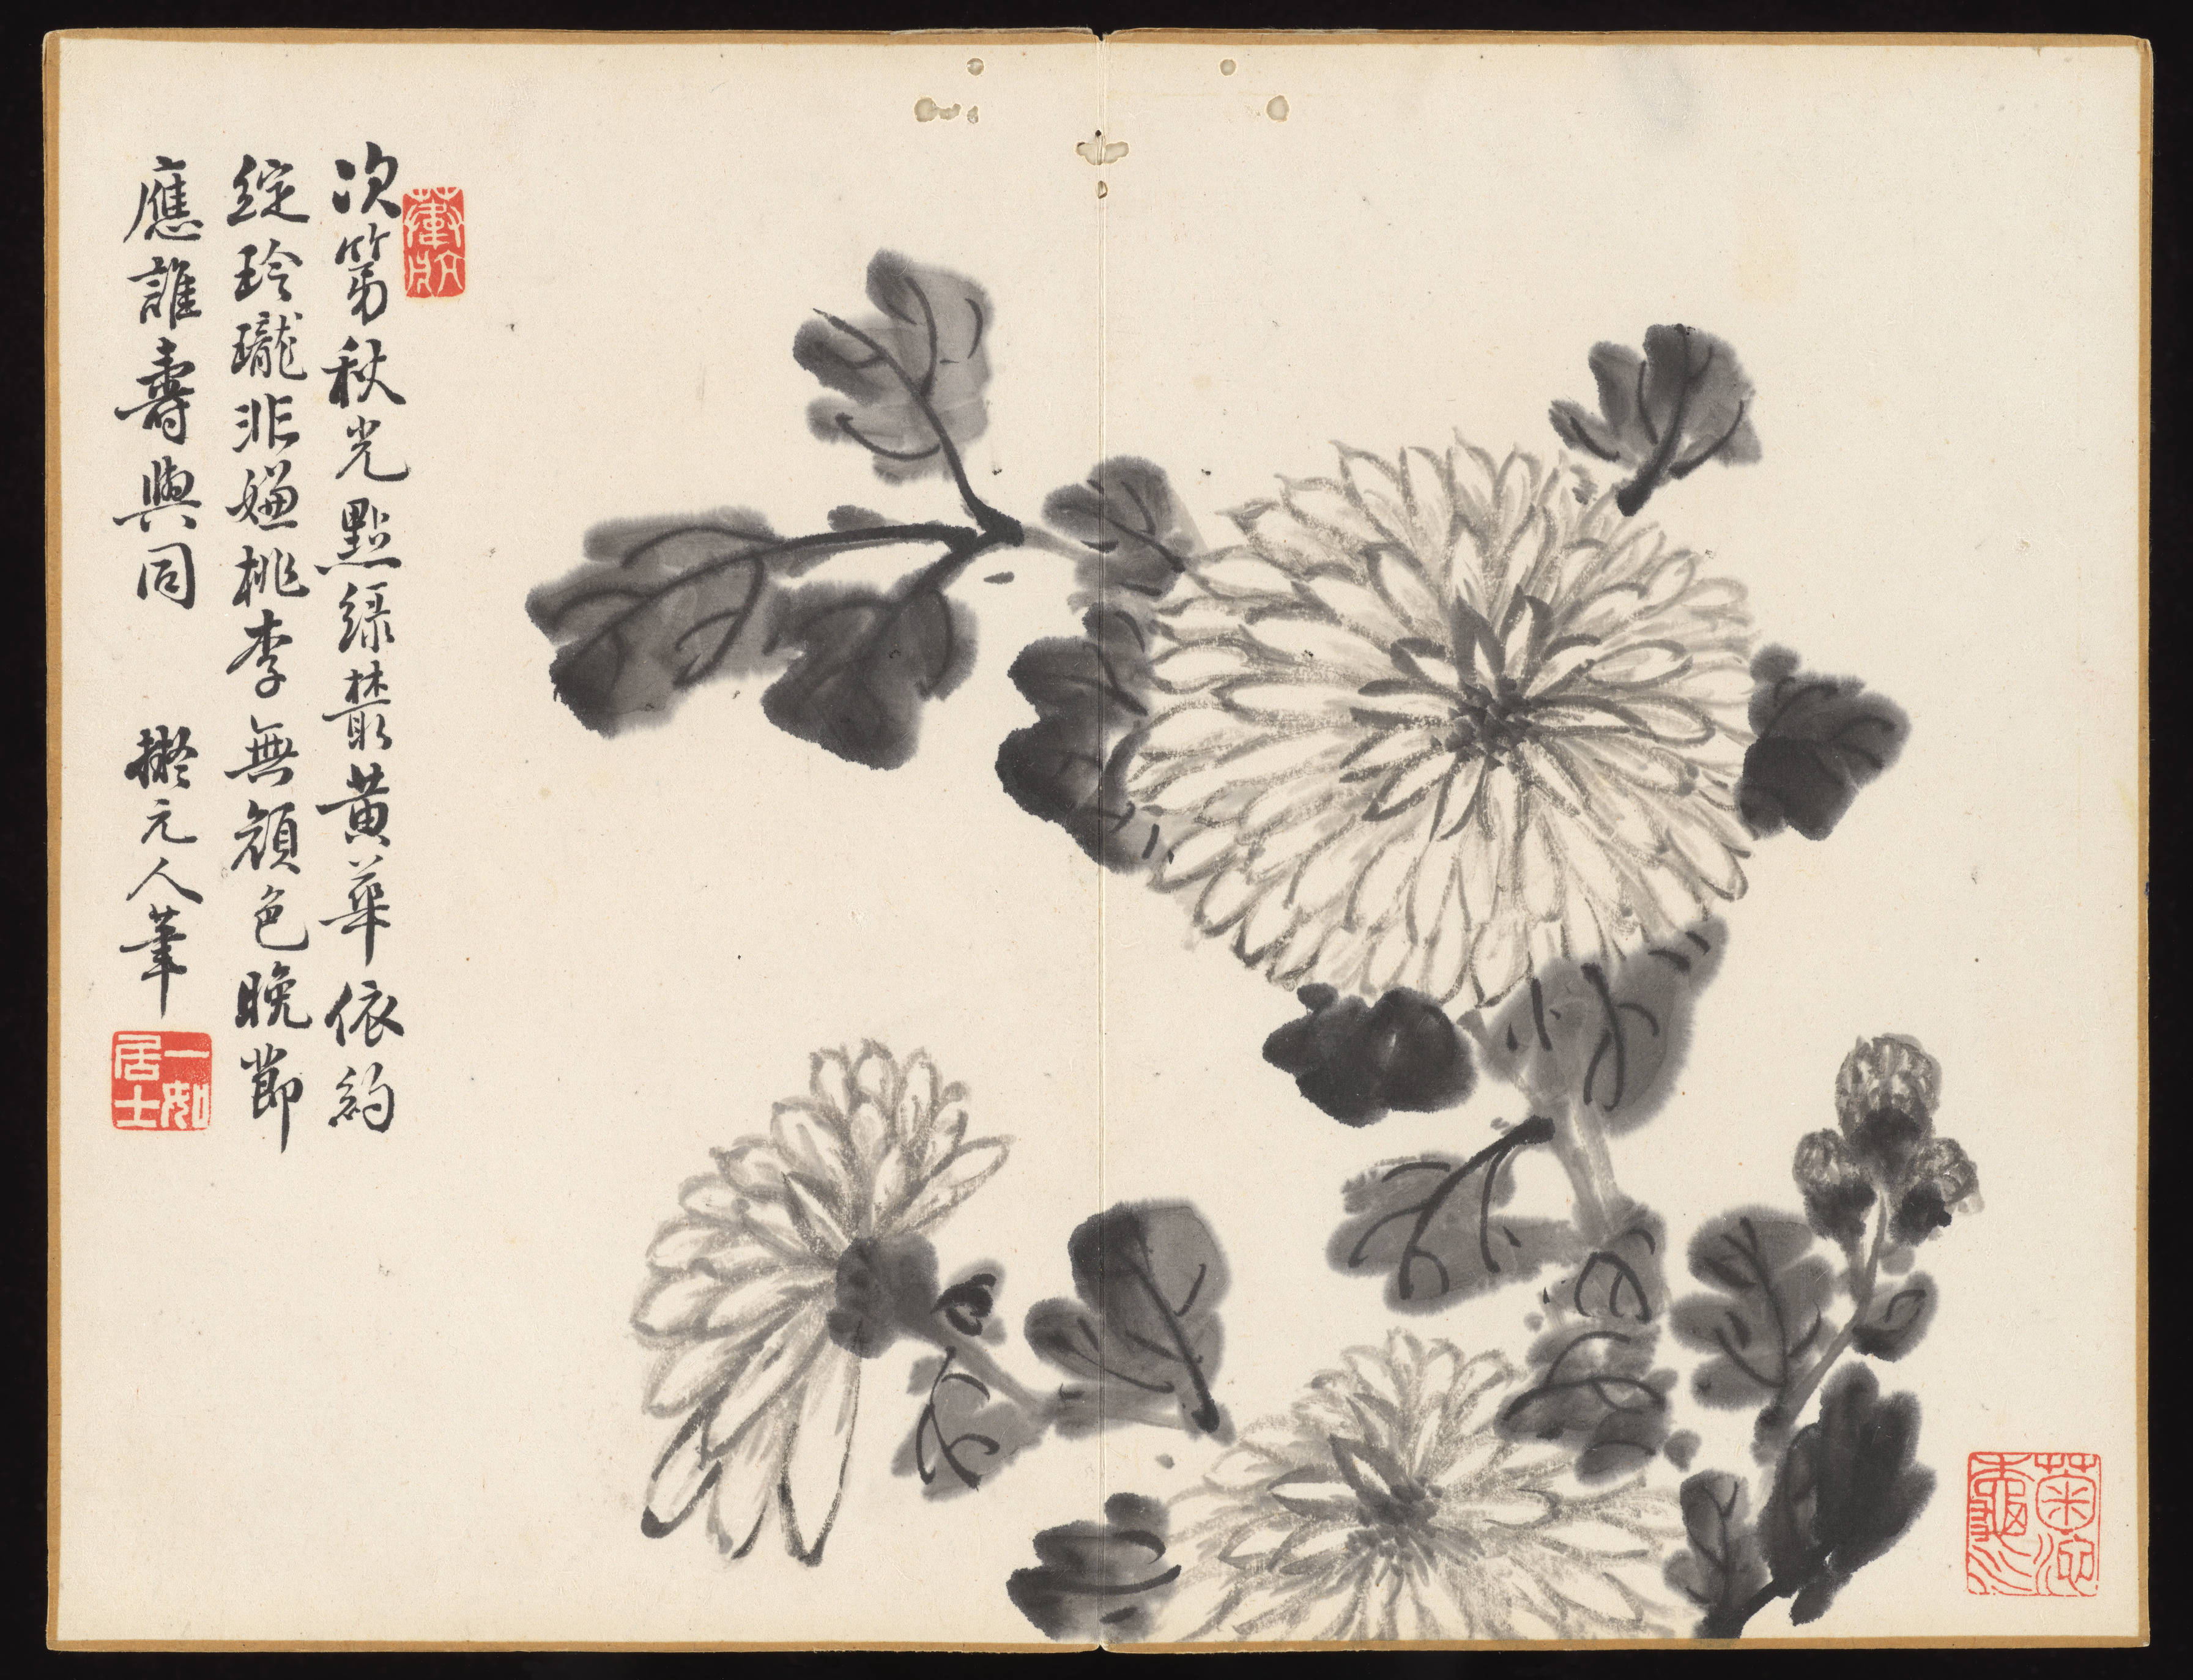 次第秋光點綠叢黃華依約
綻玲瓏非嫌桃李無顏色晚節
應誰壽與同　擬元人筆
一如居士